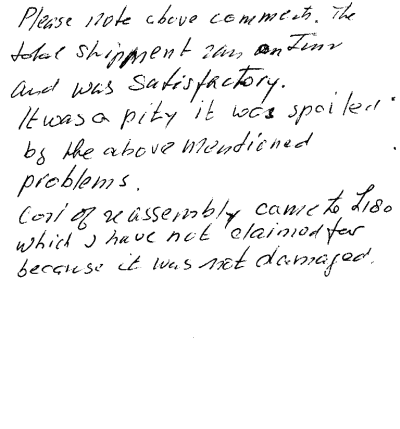 Please note above comments. The
total shipment ran on Time
and was satisfactory.
It was a pity it was spoiled
by the above mentioned
problems.
Cost of reassembly came to £180
which I have not claimed for
because it was not damaged.